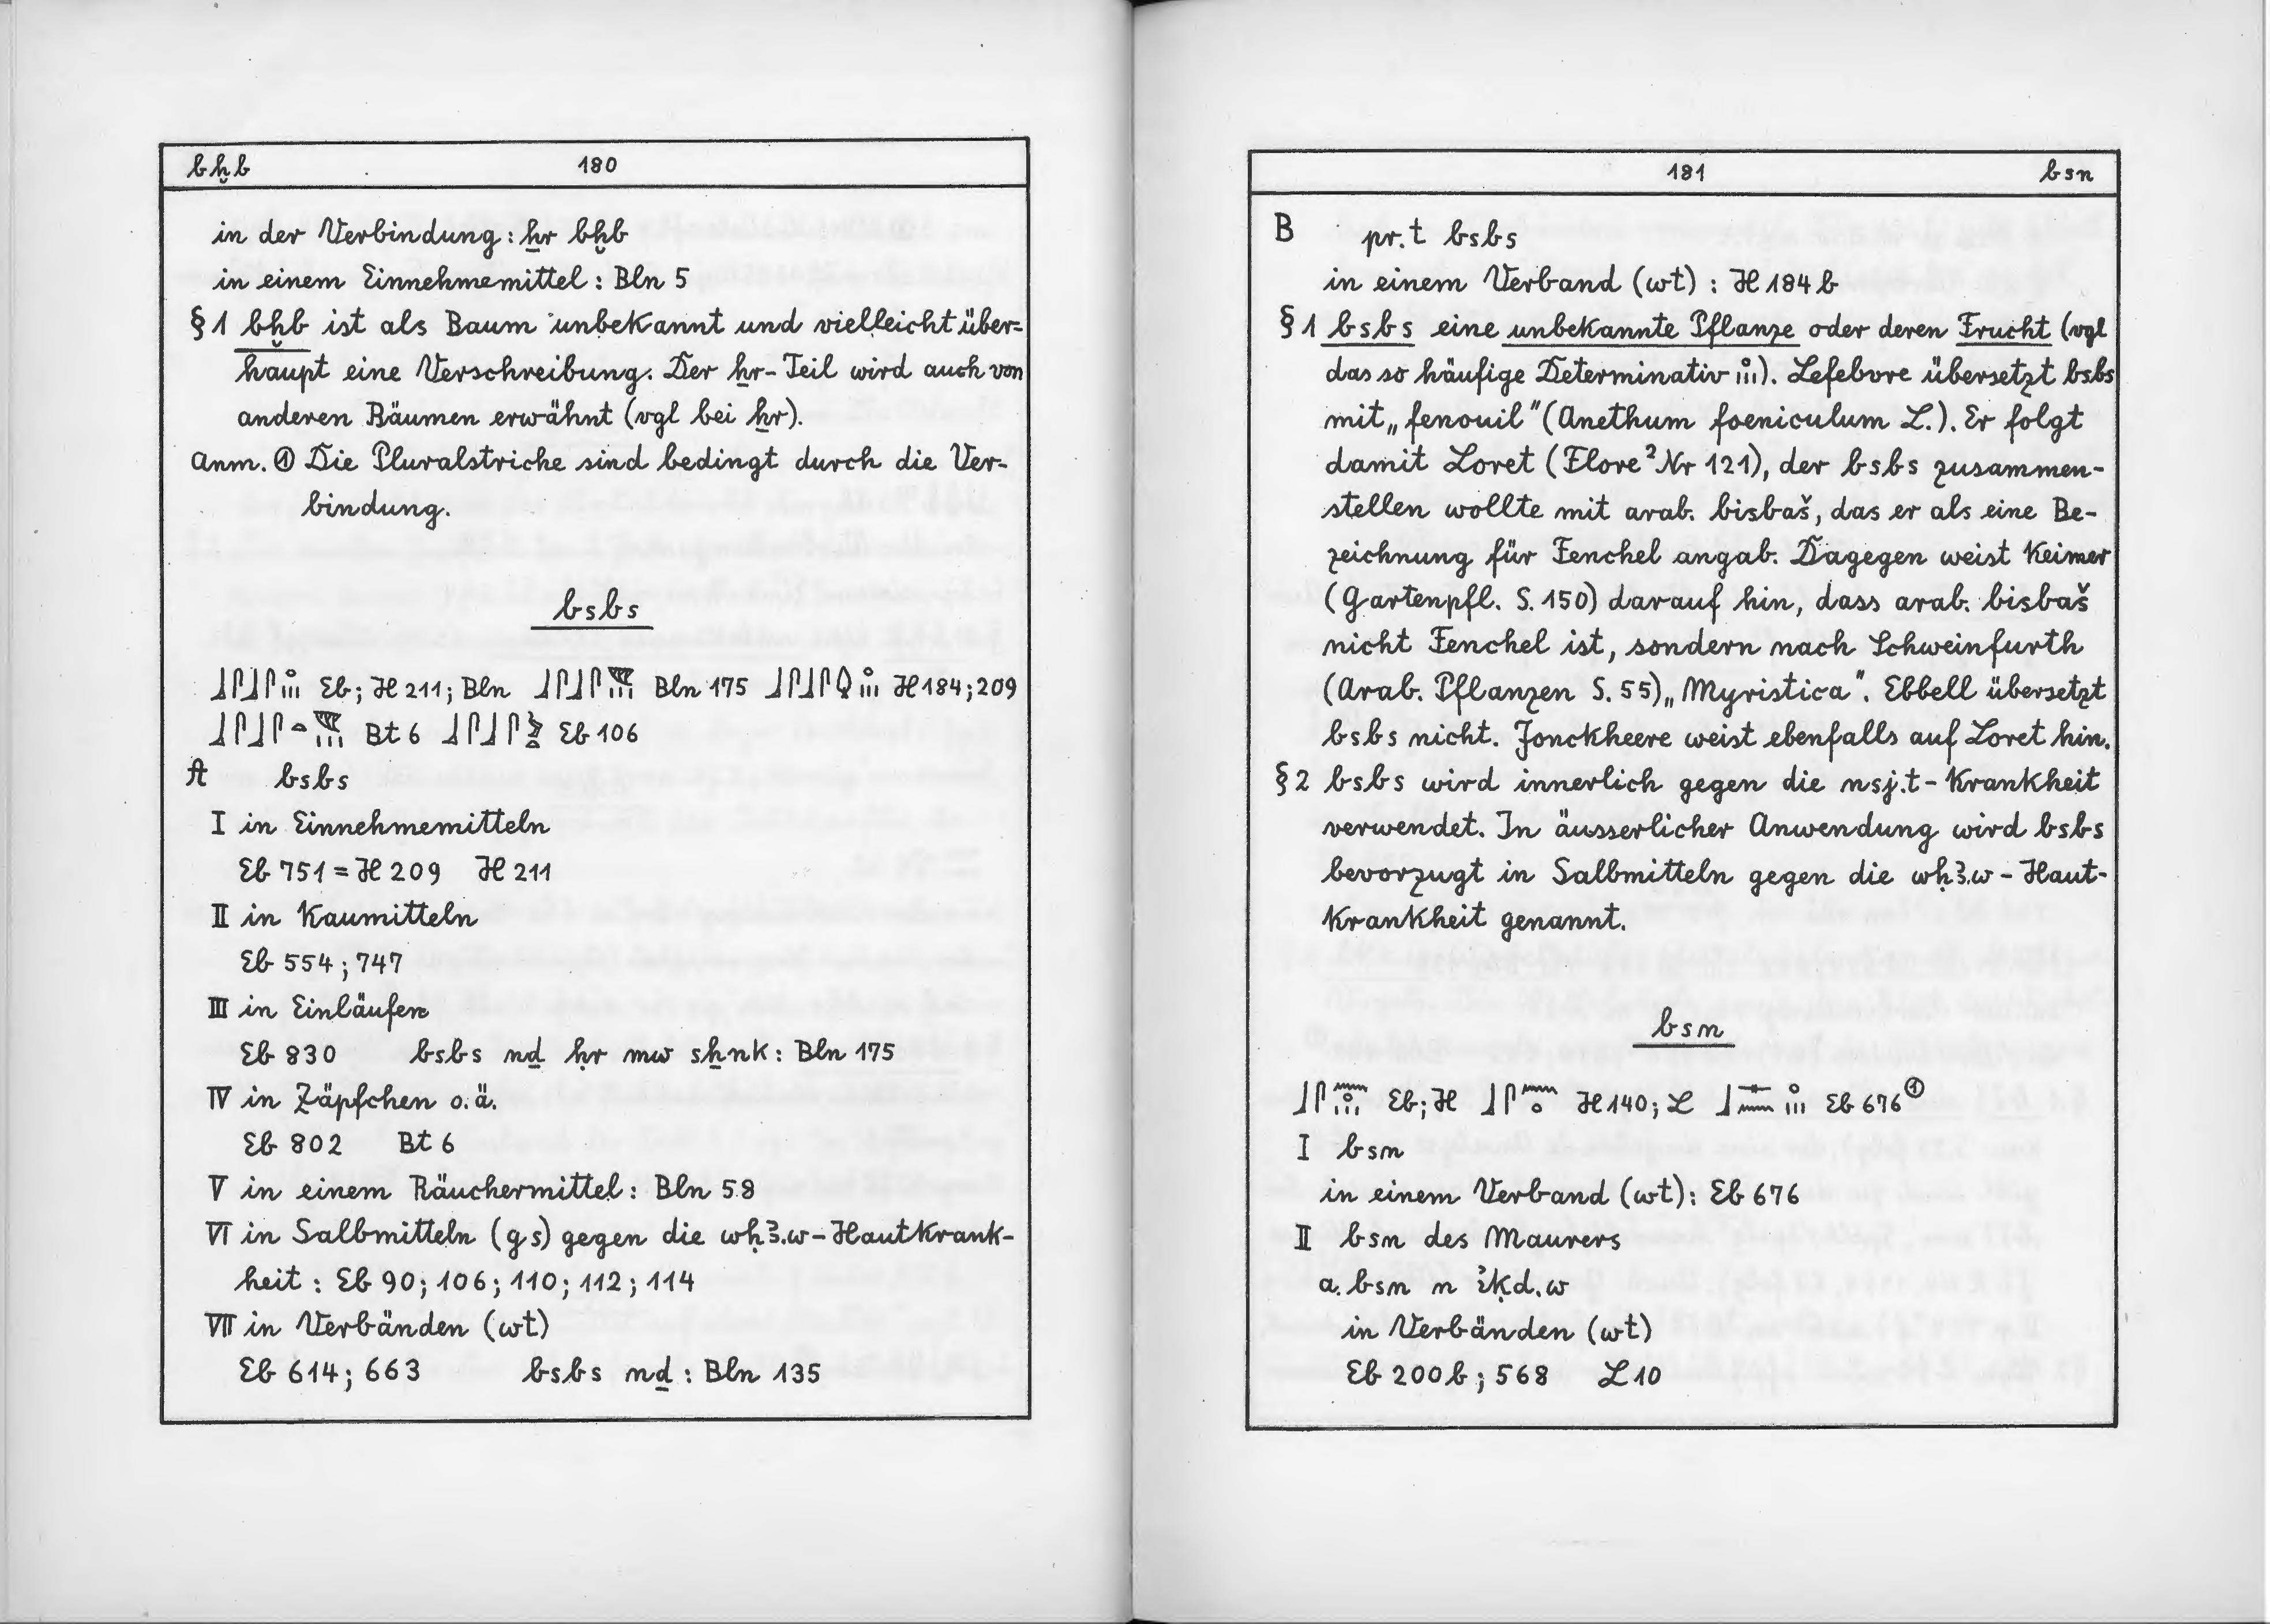 bḫb 180
in der Verbindung: ẖr bḫb
in einem Einnehmemittel: Bln 5
§ 1 bḫb ist als Baum unbekannt und vielleicht über=
haupt eine Verschreibung. Der ẖr-Teil wird auch von
anderen Bäumen erwähnt (vgl bei ẖr).
Anm. ① Die Pluralstriche sind bedingt durch die Ver-
bindung.
bsbs
Eb; H 211; Bln Bln 175 H 184; 209
Bt 6 Eb 106
A bsbs
I in Einnehmemitteln
Eb 751 = H 209 H 211
II in Kaumitteln
Eb 554; 747
III in Einläufen
Eb 830 bsbs nḏ ḥr mw sẖnk: Bln 175
IV in Zäpfchen o.ä.
Eb 802 Bt 6
V in einem Räuchermittel: Bln 58
VI in Salbmitteln (gs) gegen die wḥꜣ.w-Hautkrank-
heit: Eb 90; 106; 110; 112; 114
VII in Verbänden (wt)
Eb 614; 663 bsbs nḏ: Bln 135
181 bsn
B pr.t bsbs
in einem Verband (wt): H 184 b
§ 1 bsbs eine unbekannte Pflanze oder deren Frucht (vgl
das so häufige Determinativ ). Lefebvre übersetzt bsbs
mit „fenouil" (Anethum foeniculum L.). Er folgt
damit Loret (Flore² Nr 121), der bsbs zusammen-
stellen wollte mit arab. bisbaš, das er als eine Be-
zeichnung für Fenchel angab. Dagegen weist Keimer
(Gartenpfl. S. 150) darauf hin, dass arab. bisbaš
nicht Fenchel ist, sondern nach Schweinfurth
(Arab. Pflanzen S. 55) „Myristica". Ebbell übersetzt
bsbs nicht. Jonckheere weist ebenfalls auf Loret hin.
§ 2 bsbs wird innerlich gegen die nsj.t-Krankheit
verwendet. In äusserlicher Anwendung wird bsbs
bevorzugt in Salbmitteln gegen die wḥꜣ.w-Haut-
krankheit genannt.
bsn
Eb; H H 140; L Eb 676 ①
I bsn
in einem Verband (wt): Eb 676
II bsn des Maurers
a. bsn n ı͗ḳd.w
in Verbänden (wt)
Eb 200 b; 568 L 10